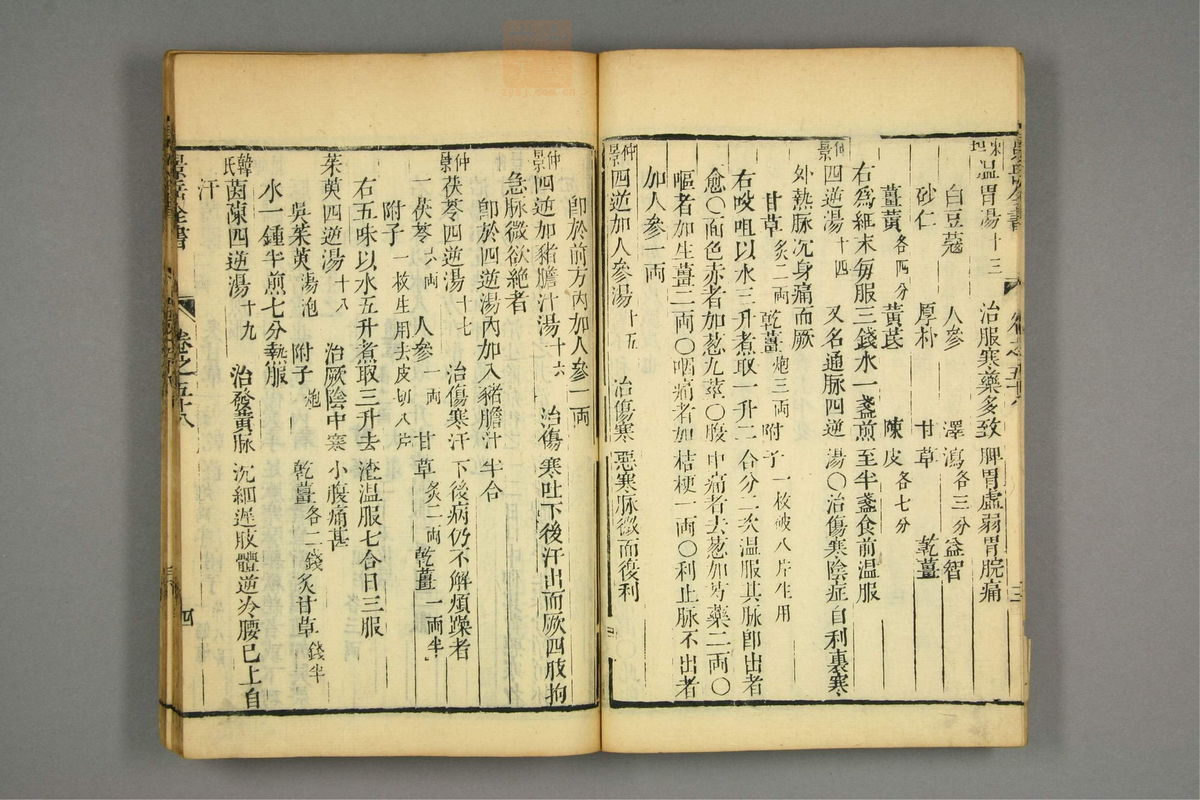 東垣溫胃湯十三 治服寒藥多致脾胃虛弱胃脘痛
白豆蔻 人參 澤瀉各三分 益智
砂仁 厚朴 甘草 乾薑
薑黃各四分 黃芪 陳皮各七分
右爲細末每服三錢水一盞煎至半盞食前溫服
仲景四逆湯十四 又名通脉四逆湯〇治傷寒陰症自利裏寒
外熱脉沉身痛而厥
甘草炙二両 乾薑炮三両 附子一枚破八片生用
右㕮咀以水三升煮取一升二合分二次溫服其脉卽出者
愈〇面色赤者加葱九莖〇腹中痛者去葱加芍藥二両〇
嘔者加生薑二両〇咽痛者加桔梗一両〇利止脉不出者
加人參一両
仲景四逆加人參湯十五 治傷寒惡寒脉微而復利
卽於前方內加人參一両
仲景四逆加豬膽汁湯十六 治傷寒吐下後汗出而厥四肢拘
急脉微欲絶者
卽於四逆湯內加入豬膽汁半合
仲景茯苓四逆湯十七 治傷寒汗下後病仍不解煩躁者
一茯苓六両 人參一両 甘草炙二両 乾薑一両半
附子一枚生用去皮切八片
右五味以水五升煮取三升去渣溫服七合日三服
茱萸四逆湯十八 治厥陰中寒小腹痛甚
吳茱萸湯泡 附子炮 乾薑各二錢 炙甘草錢半
水一鍾半煎七分熱服
韓氏茵陳四逆湯十九 治發黃脉沉細遲肢體逆冷腰已上自
汗
景岳全書
卷之五十八
四